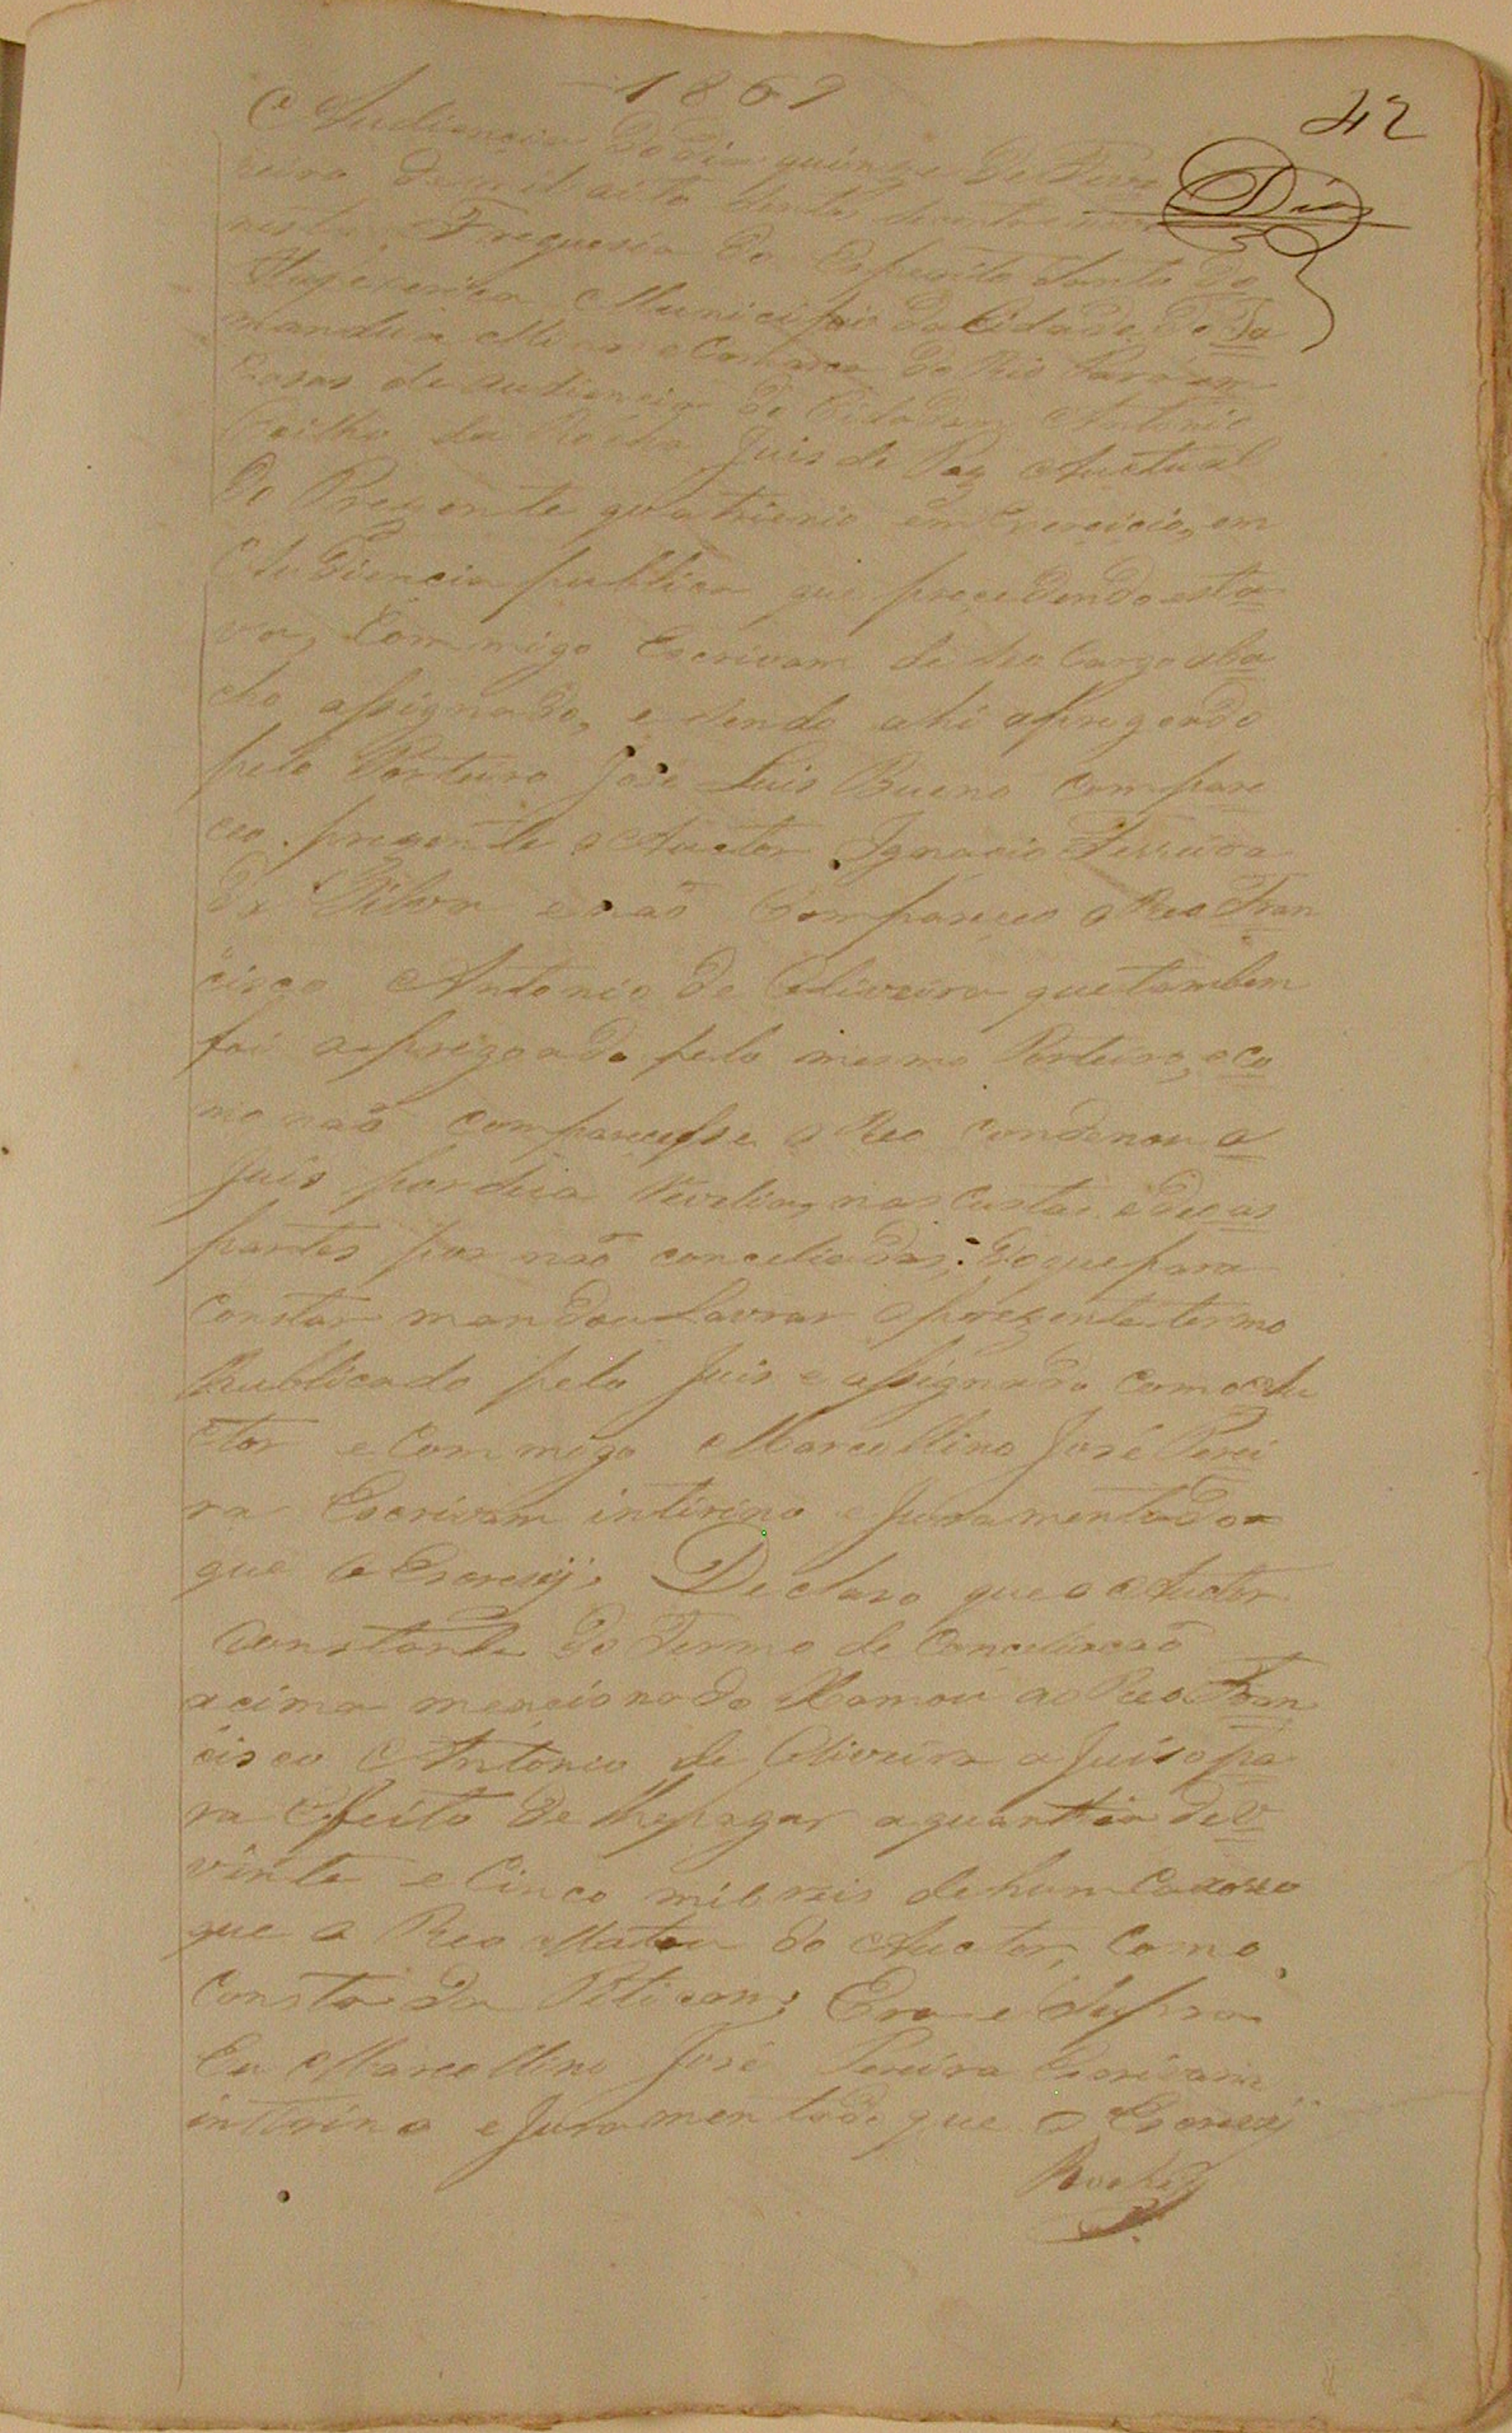 1869
42
Dias
Audiencia do dia quinze de Feve
reiro de mil oito centos secenta e nove
nesta Freguesia do Espirito Santo da
Itapecerica Municipio da Cidade do Ta
manduá Minas e Comarca do Rio Pará em
Casas de audiencia do Cidadam Antonio
Coilho da Rocha Juis de Paz Auctual
do Prezente quatrienio em Exercicio, em
Audiencia publica que procedendo esta
va, Commigo Escrivam de seo Cargo aba
cho assignado, e sendo ahi apregoado
pelo Porteiro José Luis Bueno Compare
ceo prezente o Auctor Ignacio Ferreira
da Silva e não Compareceo o Reo Fran
cisco Antonio de Oliveira que tambem
foi apregoado pelo mesmo Porteiro, e co
mo não comparecesse o Reo condenou o
Juis por sua Revelia, nas Custas e deu as
partes por não conceliadas: do que para
Constar mandou Lavrar o prezente termo
Publicado pelo Juis e assignado com o Au
ctor e Commigo Marcellino José Perei
ra Escrivam intirino e Juramentado
que o Escrevij. Declaro que o Auctor
Constante do Termo de Conceliacaõ
acima mencionado Xamou ao Reo Fran
cisco Antonio de Oliveira a Juiso pa
ra Effeito de lhe pagar a quantia de V
vinte e Cinco mil reis de hum Caxorro
que o Reo Matou do Auctor, Como
Consta da Peticam; Era e supra
Eu Marcellino José Pereira Escrivam
intirino e Juramentado que o Escrevij
Rocha